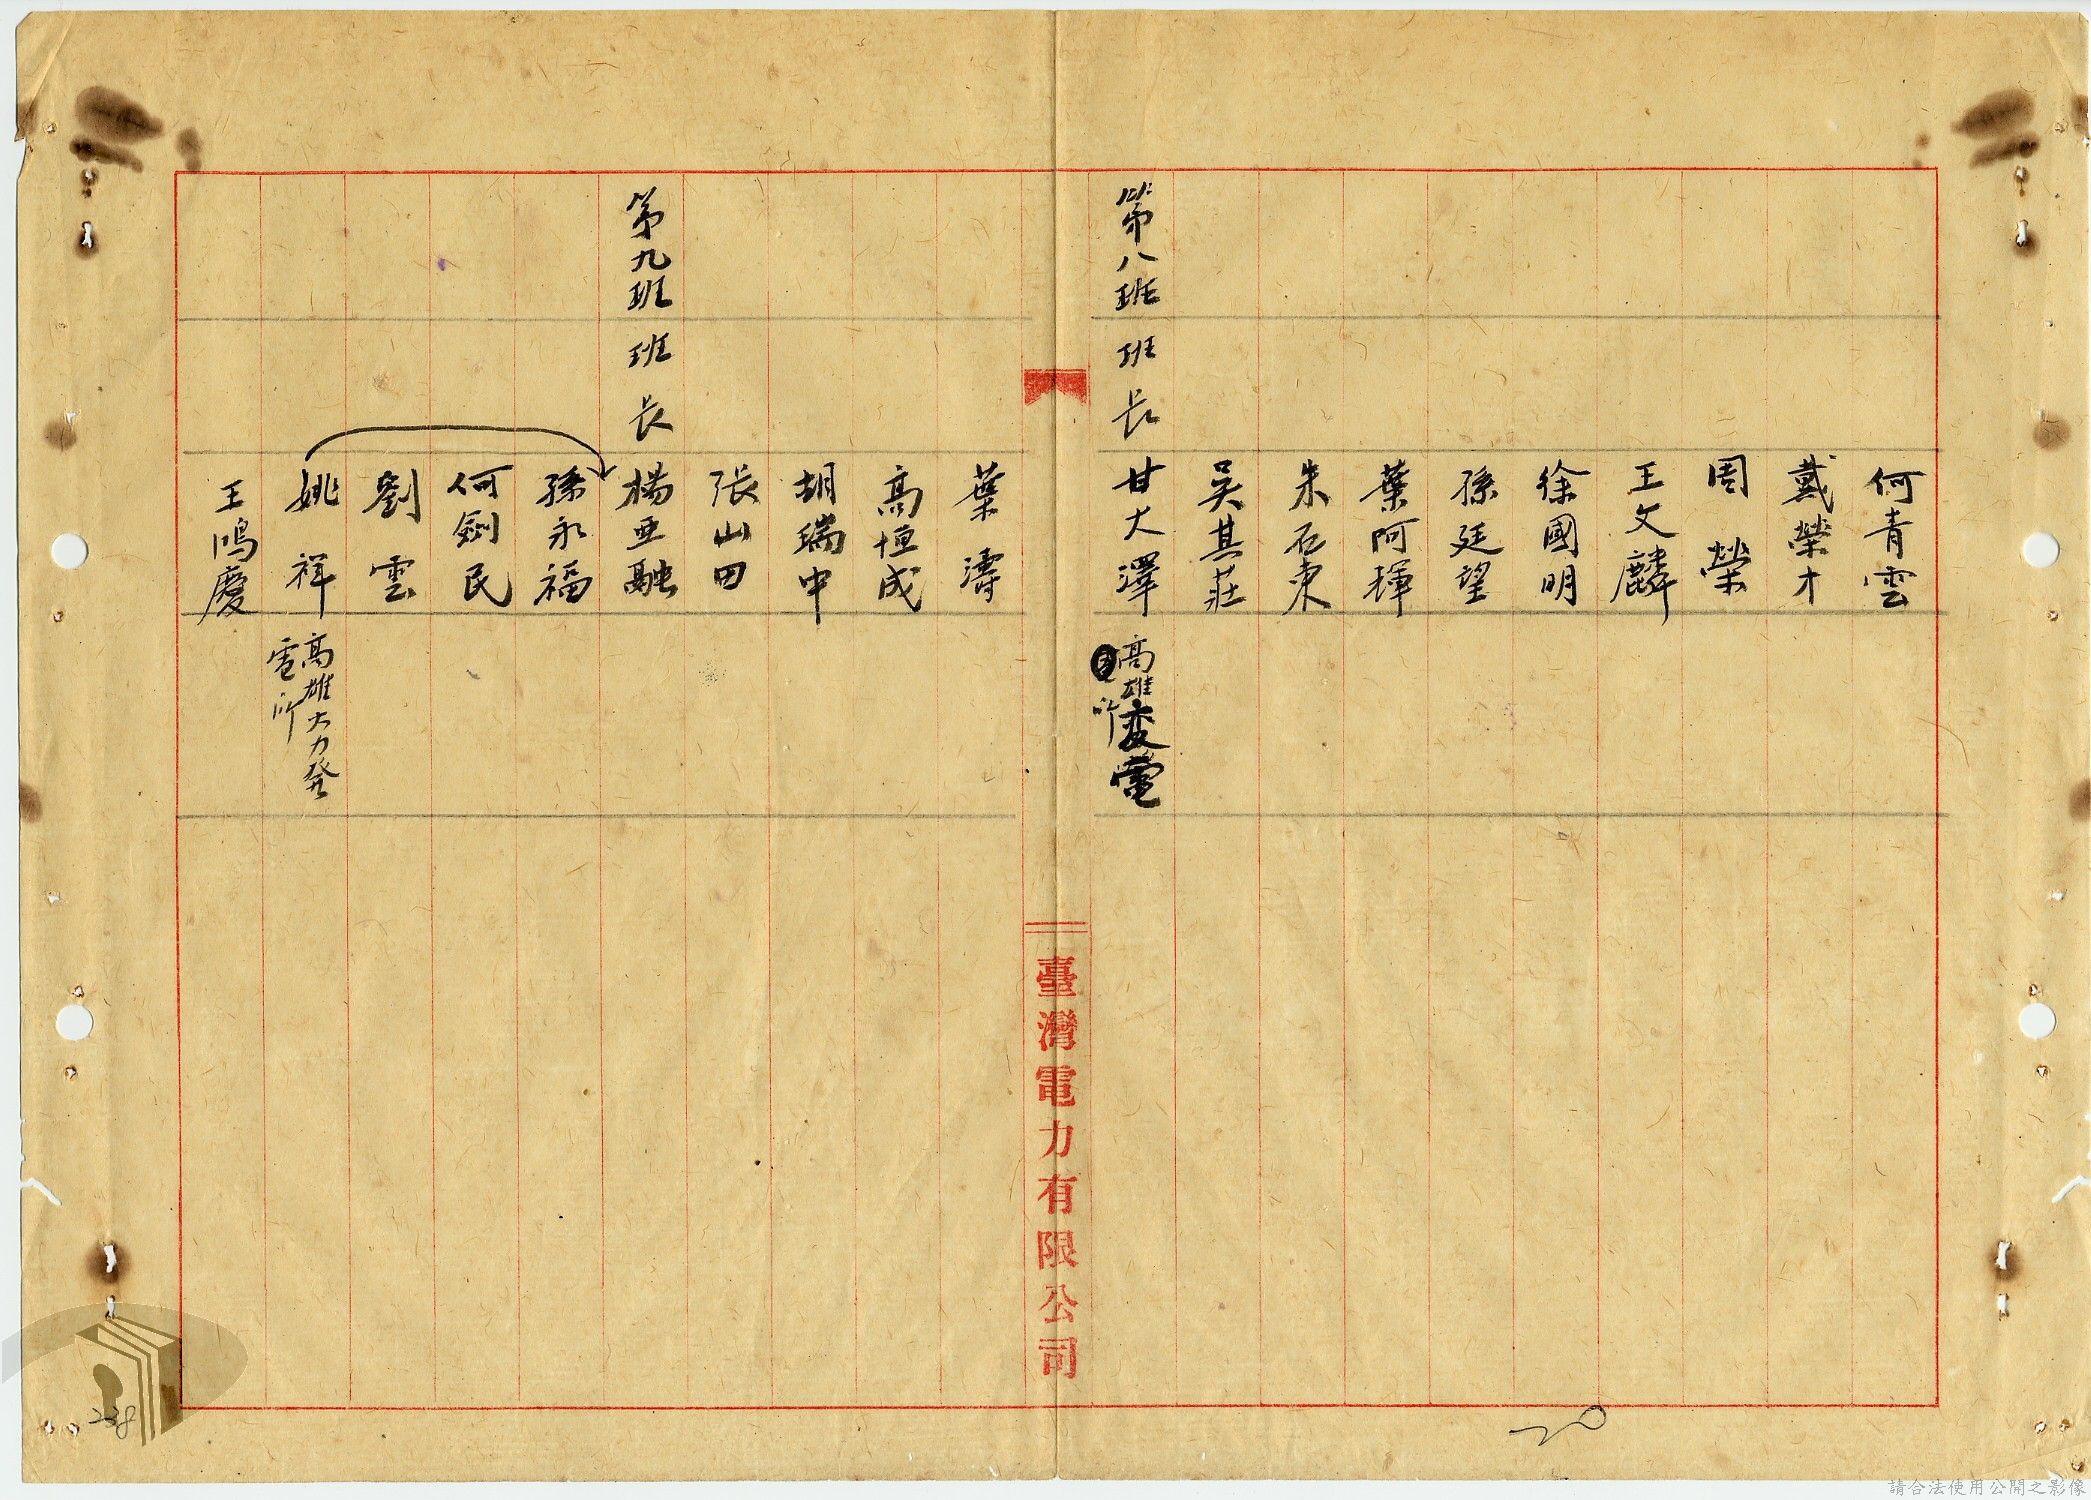 何青雲
戴榮才
周榮
王文麟
徐國明
孫廷望
葉阿輝
朱石東
吳其莊
第八班班長甘大澤高雄変電
所
臺灣電力有限公司
葉濤
高恒成
胡瑞中
張山田
第九班班長楊亜融
孫永福
何劍民
劉雲
姚祥高雄大力発
電所
王鳴慶
20
238
請合法使用公開之影像